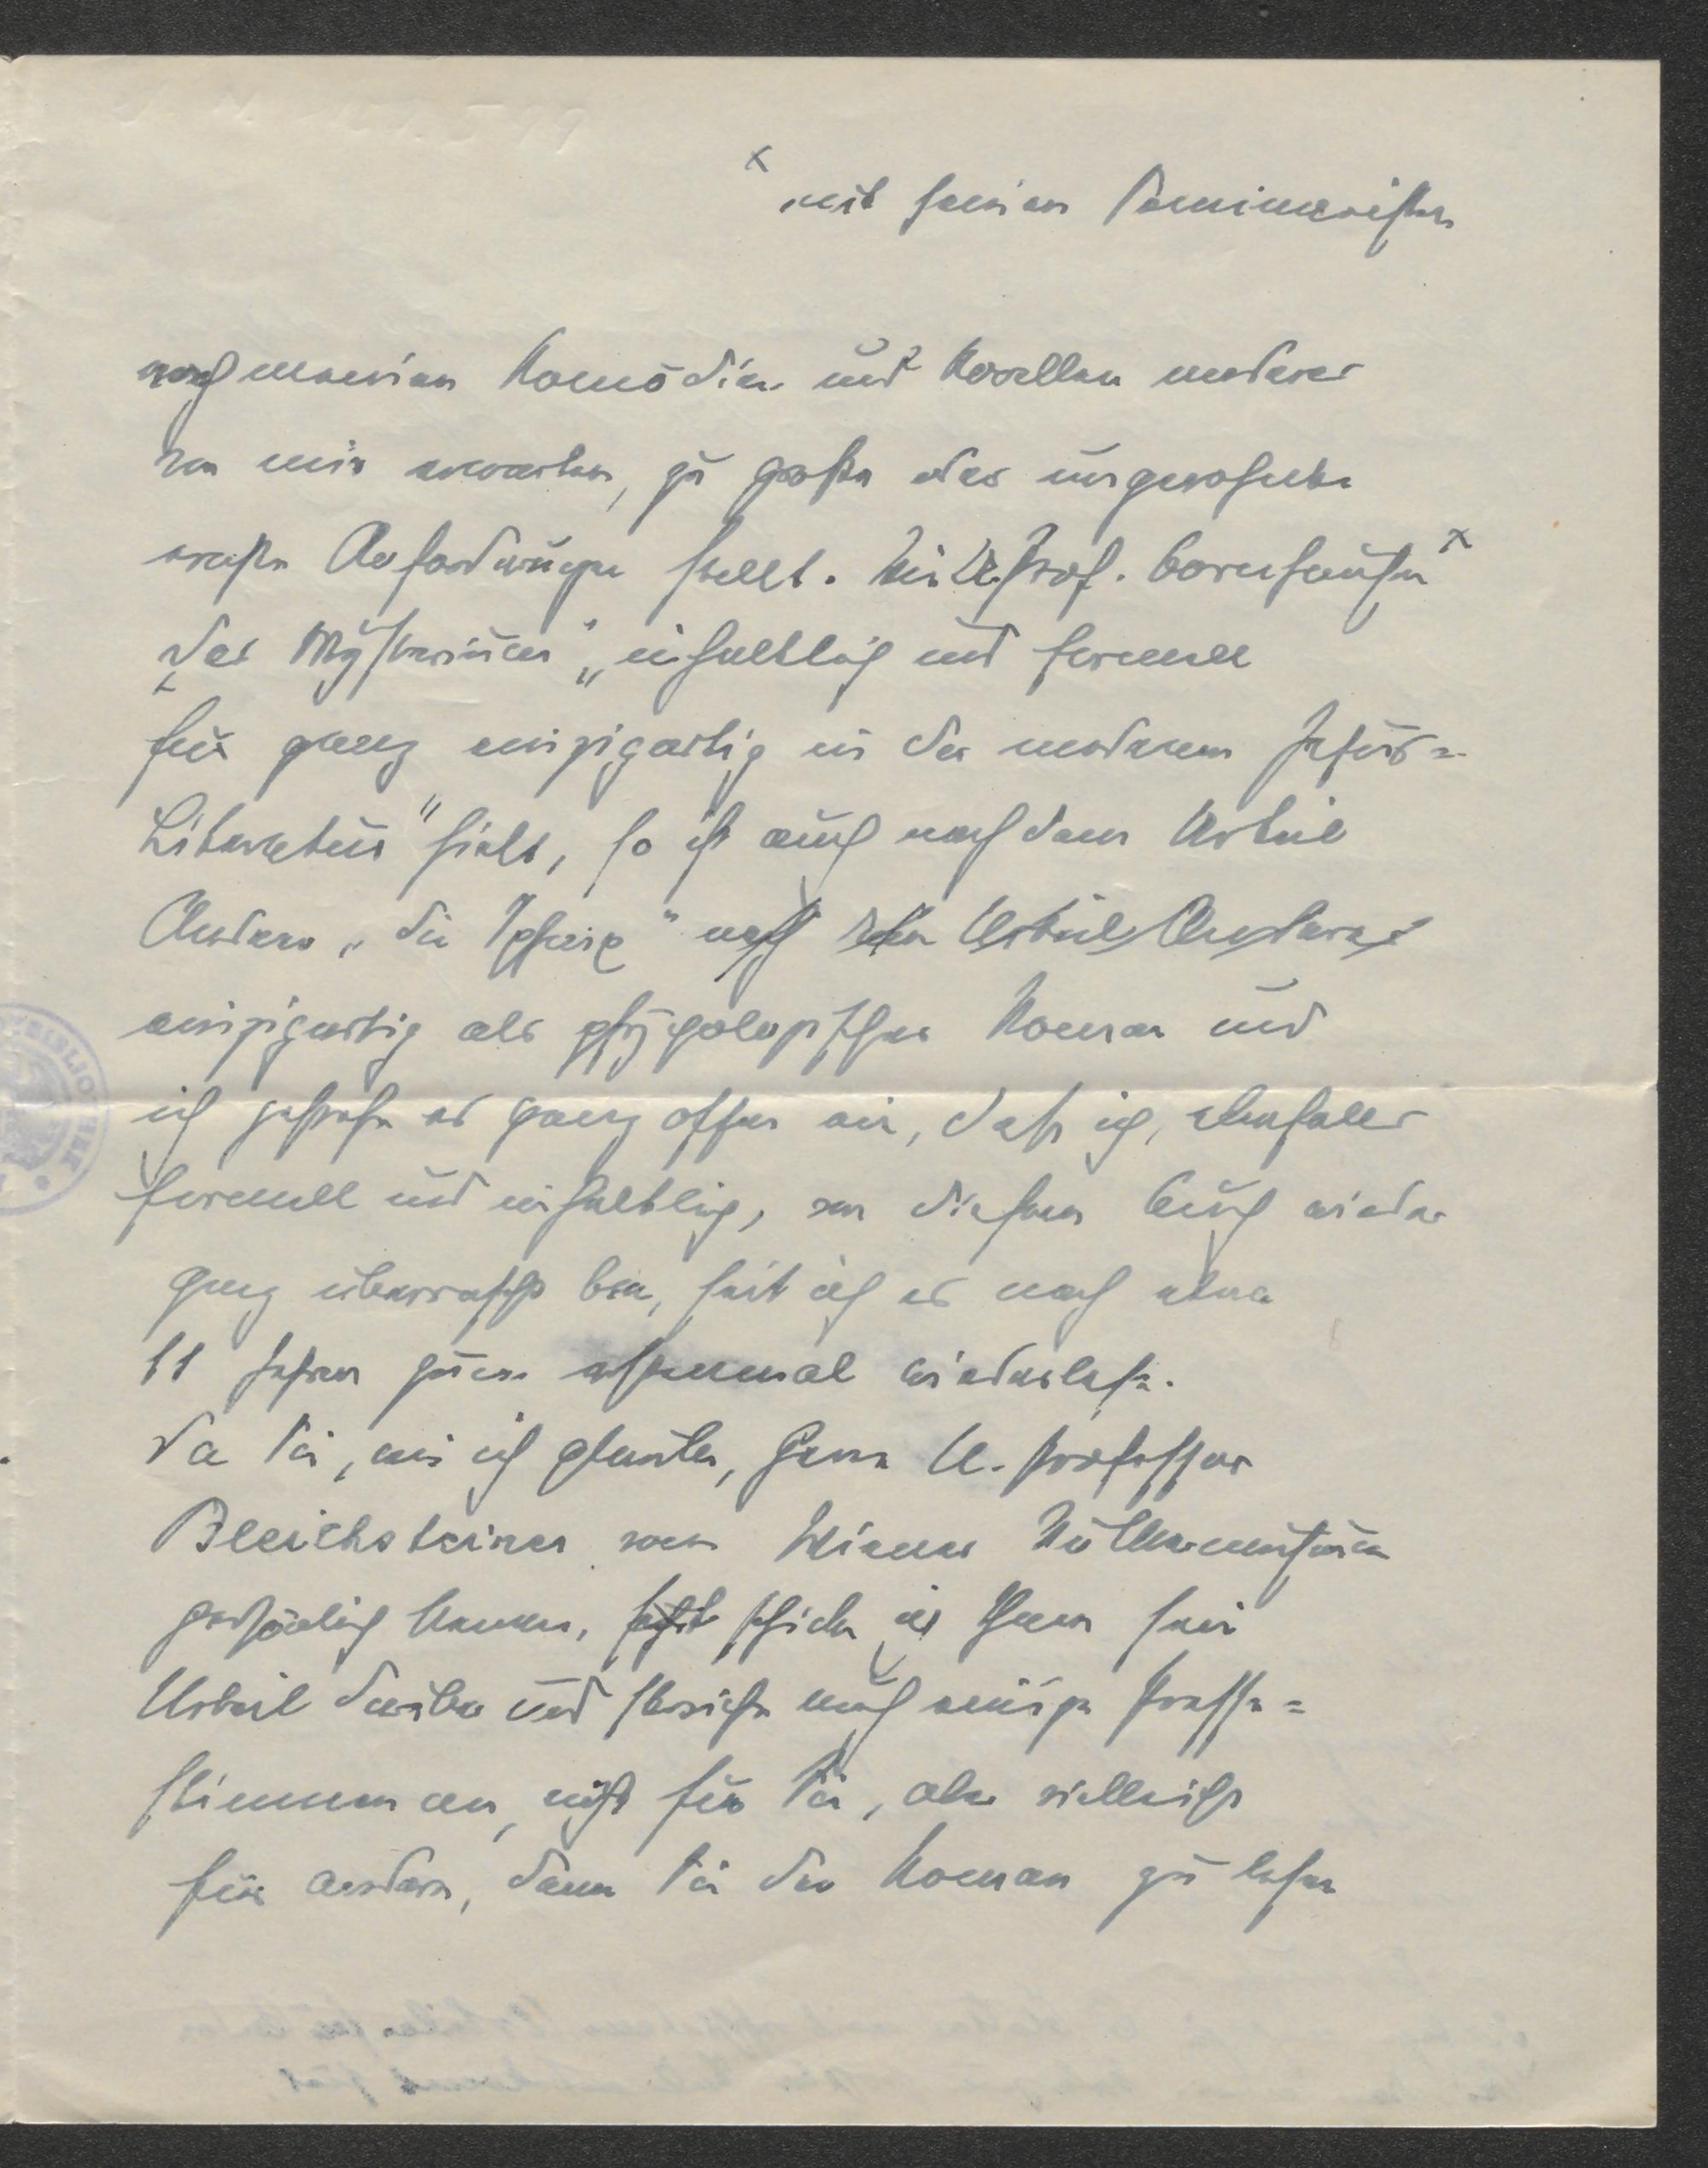 x mit seinen Seminaristen
nach meinen Komödien und Novellen anderes
von mir erwarten, zu große oder ungewohnte
ernste Anforderungen stellt. Prof. Bornhausen x
„das Mysterium" „inhaltlich und formell
für ganz einzigartig in der modernen Jesus-
Literatur" hielt, so ist auch nach dem Urteil
Anderer „die " nach dem Urteil Anderer
einzigartig als psychologischer Roman und
ich gestehe es ganz offen ein, daß ich, ebenfalls
formell und inhaltlich, von diesem Buch wieder
ganz überrascht bin, seit ich es nach etwa
11 Jahren zum erstenmal wiederlese.
Da Sie, wie ich glaube, Herrn U. Professor
Bleichsteiner vom Wiener Völkermuseum
persönlich kennen, schicke ich Ihnen sein
Urteil darüber und streiche noch einige Presse-
stimmen an, nicht für Sie, aber vielleicht
für andere, denn Sie den Roman zu lesen